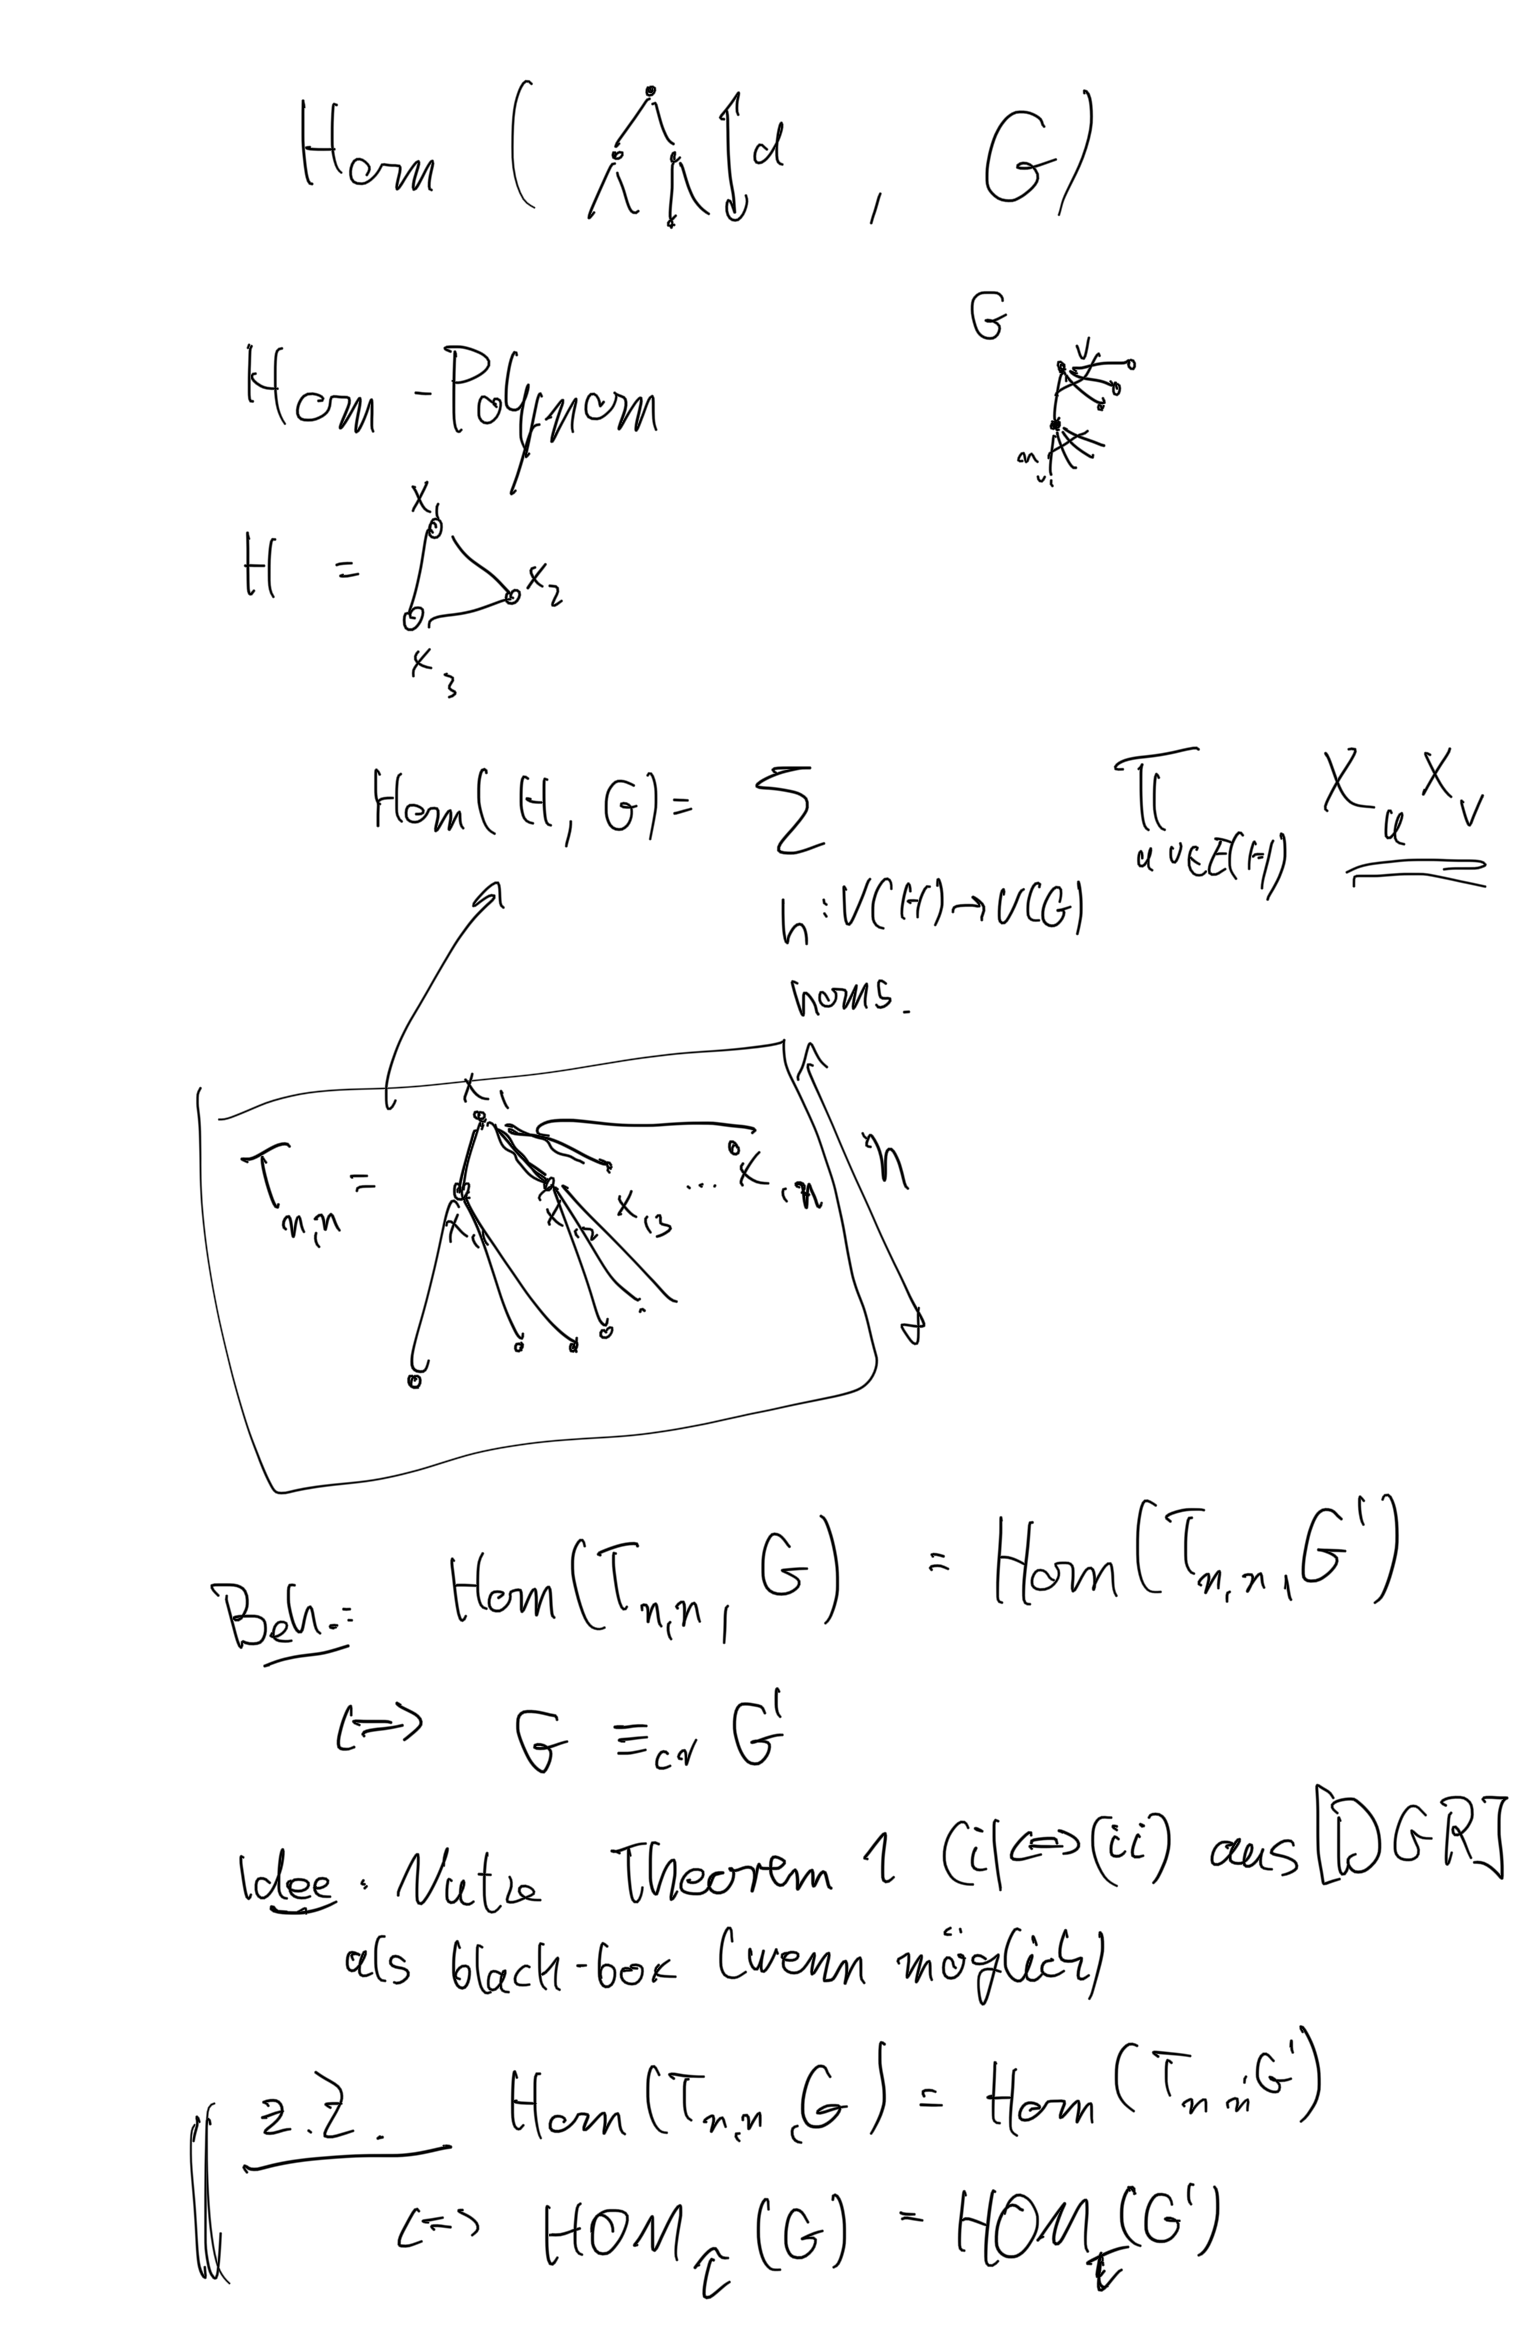 Hom ( d , G )
G
v
Hom-Polynom
n
v_i
x_1
H = x_2
x_3
Hom(H, G) = ∑ ∏ X_u X_v
uv∈E(H)
h: V(H) → V(G)
homs.
x_1
T_{n,n} = x_{11} x_{12} x_{13} ... x_{1n} n
Beh.: Hom(T_{n,n}, G) = Hom(T_{n,n}, G')
<=> G ≡_{cr} G'
Idee: Nutze Theorem 1 (i)<=>(ii) aus [DGR]
als black-box (wenn möglich)
z.Z. Hom(T_{n,n}, G) = Hom(T_{n,n}, G')
<=> HOM_τ(G) = HOM_τ(G')